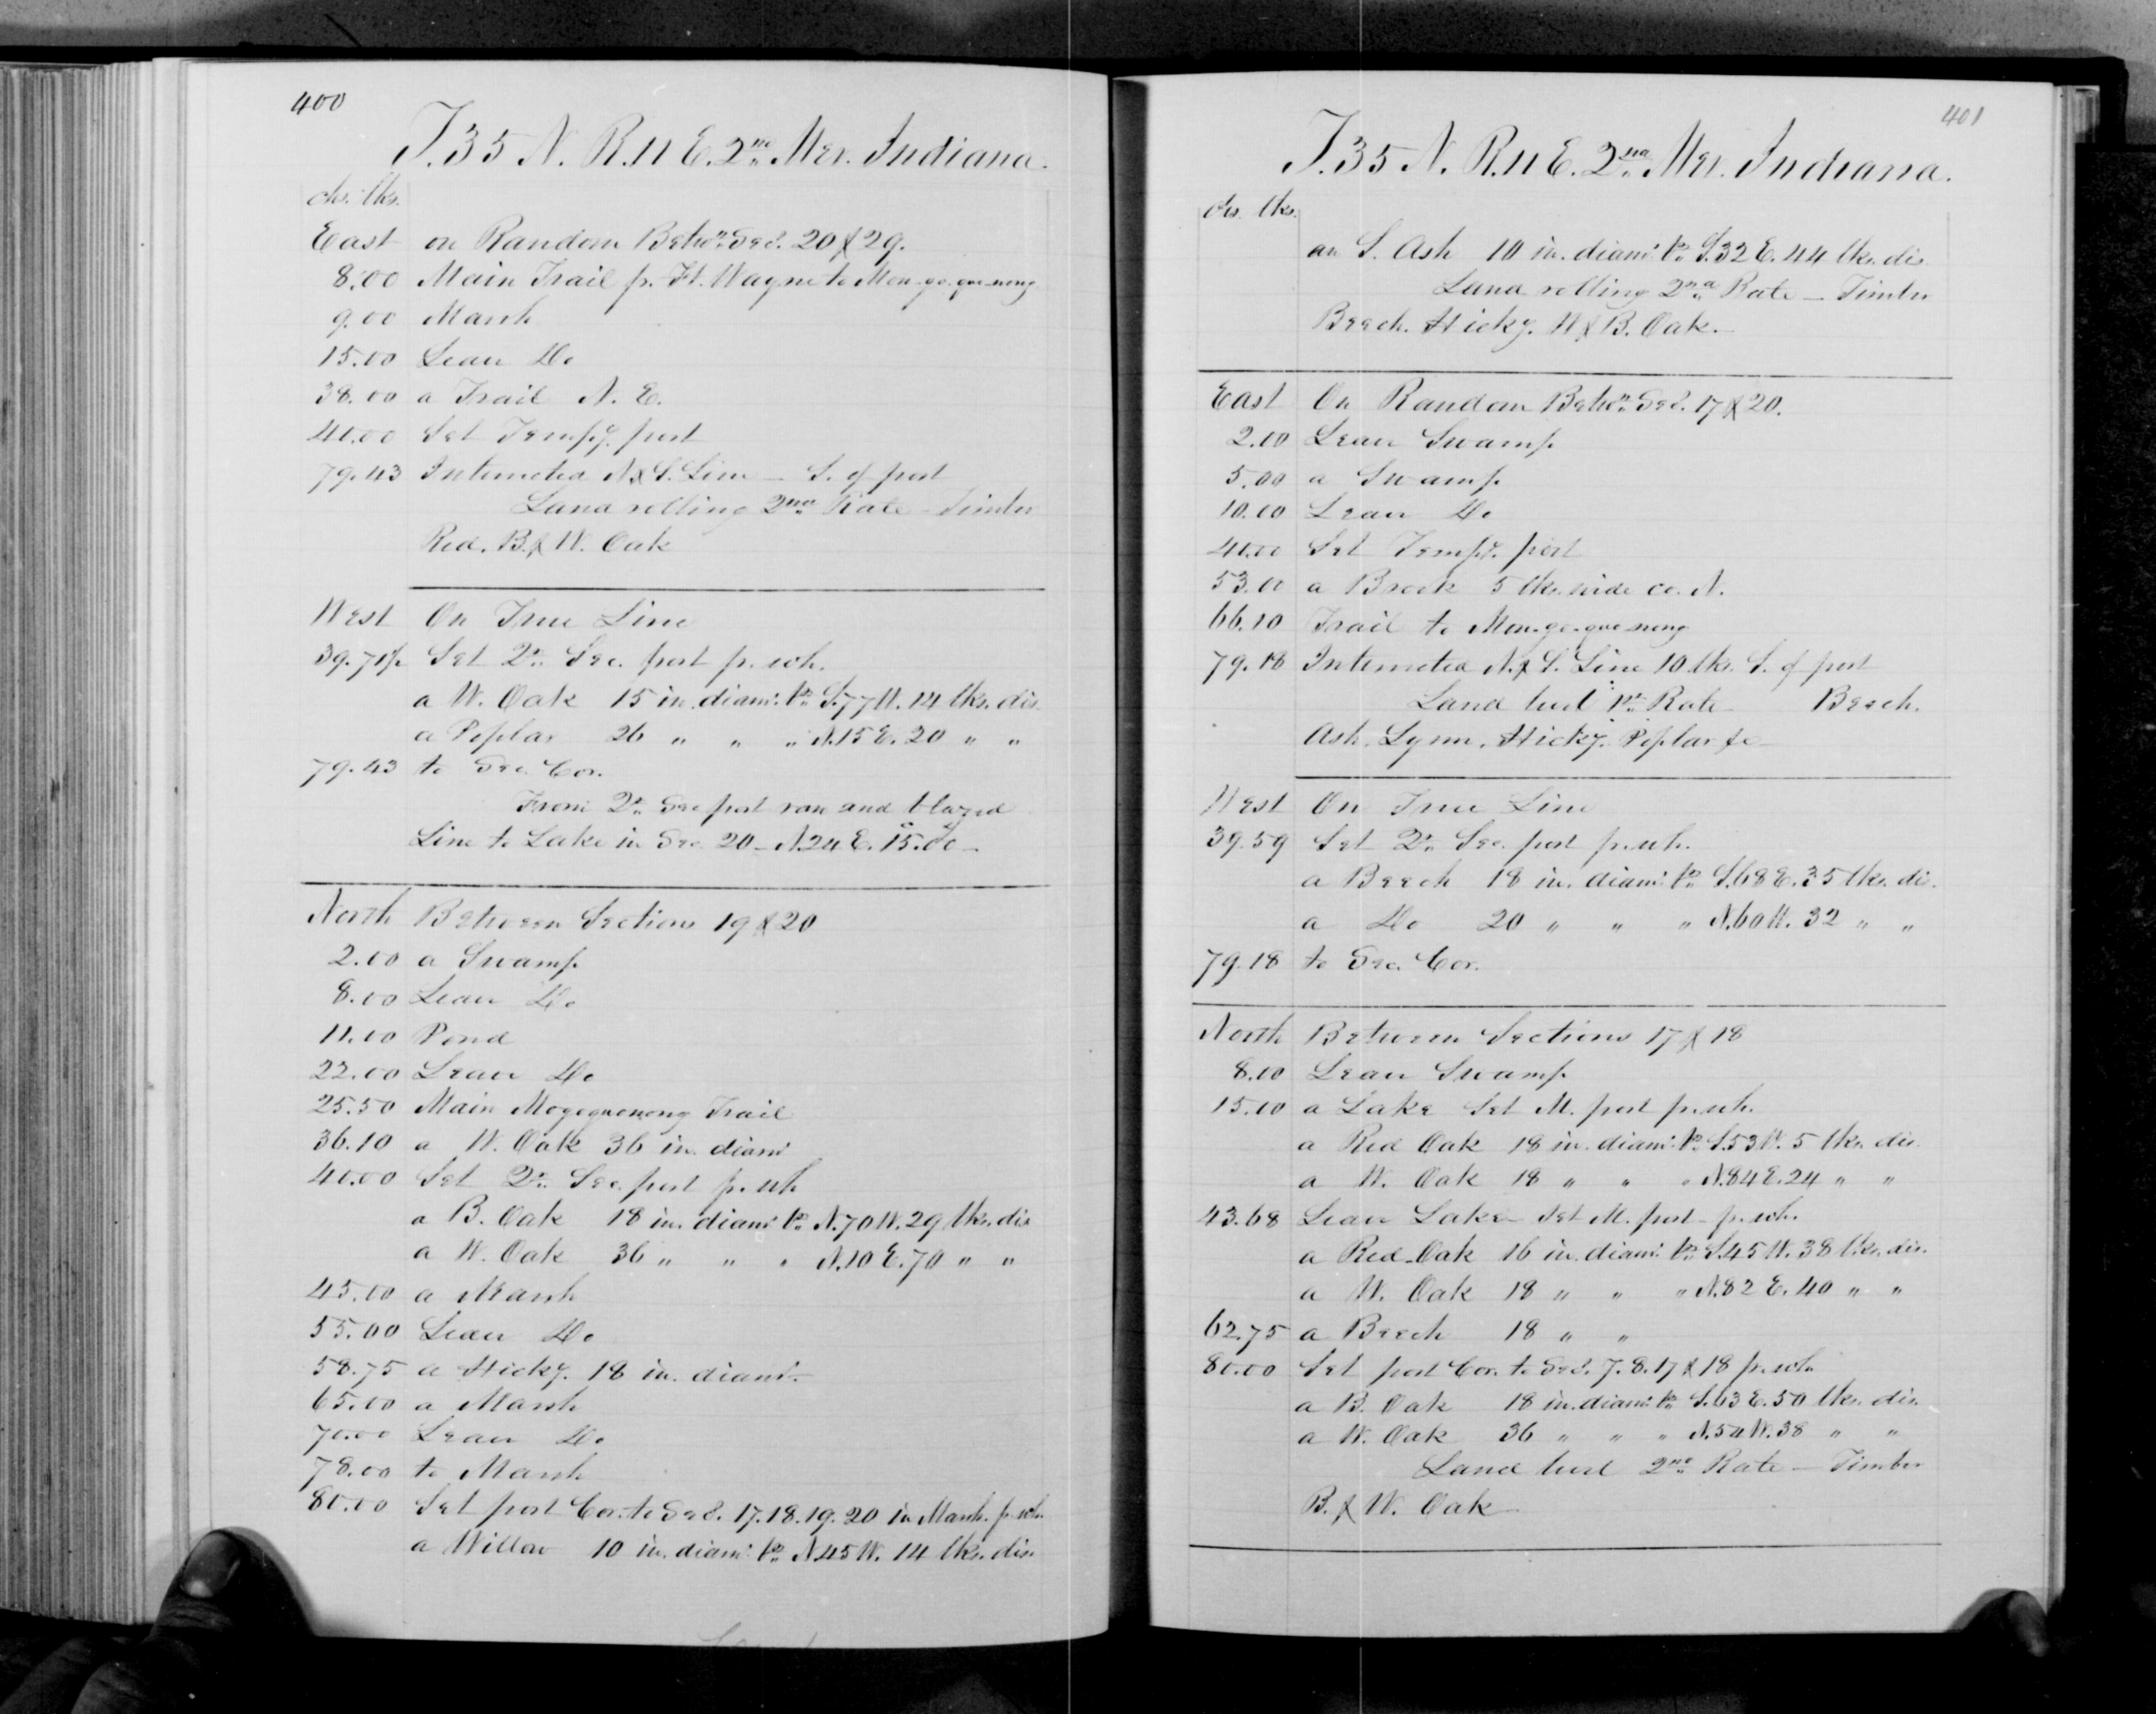 400
T. 35 N. R. 11 E. 2nd Mer. Indiana.
chs. lks.
East on Random Betwn. Secs. 20 & 29.
8.00 Main Trail fr. Ft. Wayne to Mon-go-que-nong
9.00 Marsh
15.00 Leav Do
38.00 a Trail N. E.
40.00 Set Tempy. post
79.43 Intersected N. & S. Line — S. of post
Land rolling 2nd Rate — Timber
Red. B. & W. Oak
West On True Line
39.71½ Set Qr. Sec. post fr. wh.
a W. Oak 15 in. diamr. brs. S. 77 W. 14 lks. dis.
a Poplar 26 " " " N. 15 E. 20 " "
79.43 to Sec. Cor.
From Qr. Sec post ran and blazed
Line to Lake in Sec. 20 — N. 24 E. 15.00 —
North Between Sections 19 & 20
2.00 a Swamp
8.00 Leav Do
11.00 Pond
22.00 Leav Do
25.50 Main Mogoquonong Trail
36.10 a W. Oak 36 in. diamr
40.00 Set Qr. Sec. post fr. wh
a B. Oak 18 in. diamr. brs. N. 70 W. 29 lks. dis
a W. Oak 36 " " " N. 10 E. 70 " "
45.00 a Marsh
55.00 Leav Do
58.75 a Hicky. 18 in. diamr.
65.00 a Marsh
70.00 Leav Do
78.00 to Marsh
80.00 Set post Cor. to Secs. 17. 18. 19. 20 in Marsh. fr. wh.
a Willow 10 in. diamr. brs. N. 45 W. 14 lks. dis.
401
T. 35 N. R. 11 E. 2nd Mer. Indiana.
chs. lks.
an S. Ash 10 in. diamr. brs. S. 32 E. 44 lks. dis.
Land rolling 2nd Rate — Timber
Beech. Hicky. W & B. Oak.
East On Random Betwn. Secs. 17 & 20.
2.00 Leav Swamp
5.00 a Swamp
10.00 Leav Do
40.00 Set Tempy. post
53.00 a Brook 5 lks. wide co. N.
66.10 Trail to Mon-go-que-nong
79.18 Intersected N. & S. Line 10 lks. S. of post
Land level 1st Rate Beech.
Ash. Lynn. Hicky. Poplar &c
West On True Line
39.59 Set Qr. Sec. post fr. wh.
a Beech 18 in. diamr. brs. S. 68 E. 35 lks. dis.
a Do 20 " " " N. 60 W. 32 " "
79.18 to Sec. Cor.
North Between Sections 17 & 18
8.00 Leav Swamp
15.00 a Lake Set M. post fr. wh.
a Red Oak 18 in. diamr. brs. S. 53 W. 5 lks. dis
a W. Oak 18 " " " N. 84 E. 24 " "
43.68 Leav Lake — Set M. post — fr. wh.
a Red Oak 16 in. diamr. brs. S. 45 W. 38 lks. dis.
a W. Oak 18 " " " N. 82 E. 40 " "
62.75 a Beech 18 " "
80.00 Set post Cor. to Secs. 7. 8. 17 & 18 fr. wh.
a B. Oak 18 in. diamr. brs. S. 63 E. 50 lks. dis.
a W. Oak 36 " " " N. 54 W. 38 " "
Land level 2nd Rate — Timber
B. & W. Oak —